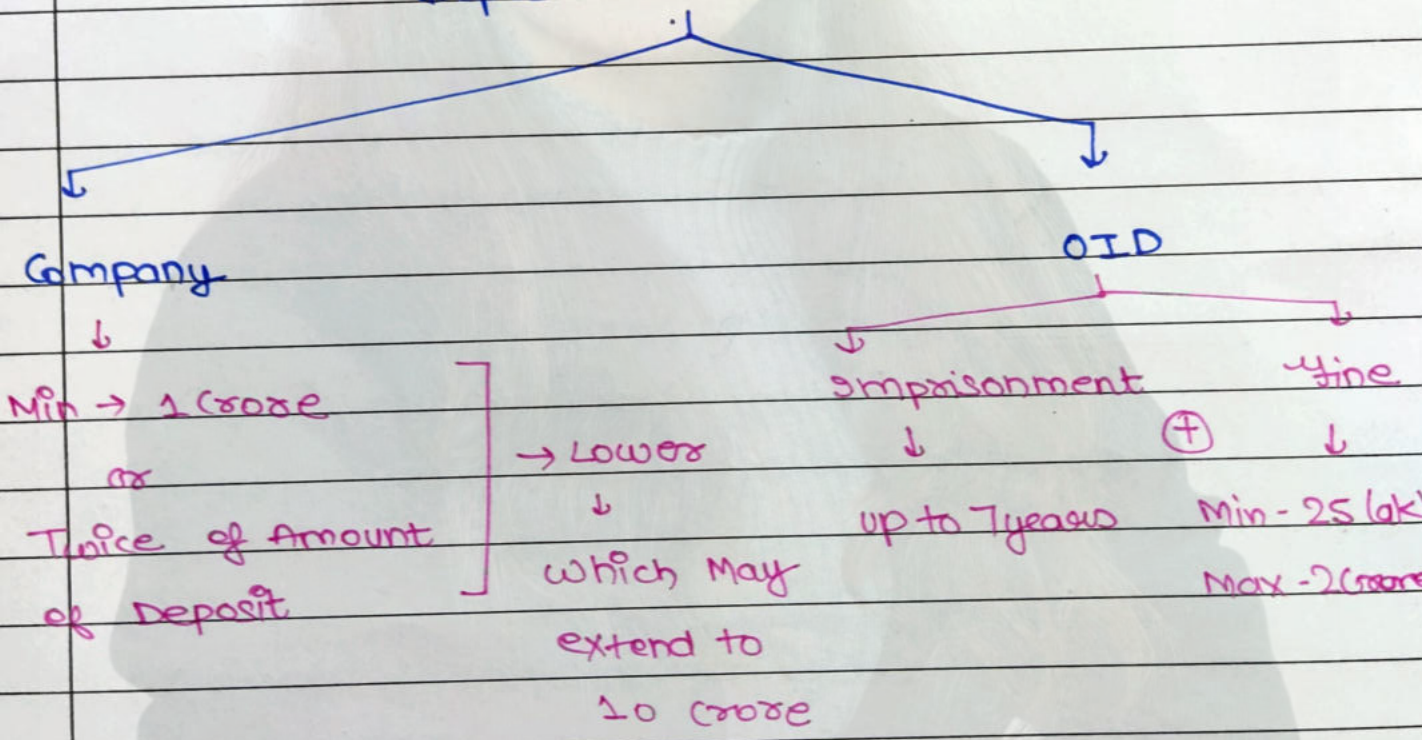 Company
OID
Min → 1 Crore
or
Twice of Amount
of Deposit
→ Lower
↓
which May
extend to
10 crore
Imprisonment
↓
up to 7 years
+
Fine
↓
Min - 25 lak
Max - 2 Crore